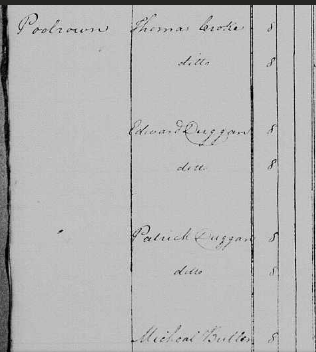 Poolrown Thomas Croke 8
ditto 8
Edward Duggan 8
ditt 8
Patrick Duggan 8
ditto 8
Micheal Butler 8